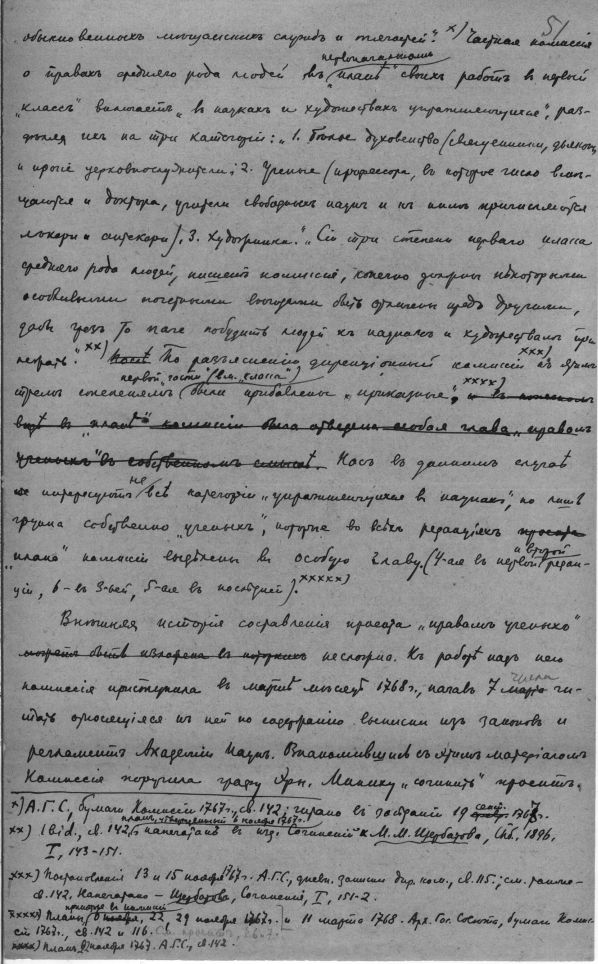 51
обыкновенныхъ мѣщанскихъ службъ и тягостей". x) Частная комиссія
о правахъ средняго рода людей въ первоначальномъ "планѣ" своихъ работъ въ первой
"классъ" включаетъ "въ наукахъ и художествахъ упражняющихся", раз-
дѣляя ихъ на три категоріи: "1. бѣлое духовенство (священники, дьяконы
и прочіе церковнослужители; 2. Ученые (профессора, въ которое число вклю-
чаются и доктора, учители свободныхъ наукъ и къ нимъ причисляются
лѣкари и аптекари), 3. Художники." "Сіи три степени перваго класса
средняго рода людей, пишетъ комиссія, конечно должны нѣкоторыми
особливыми почетными выгодами быть отличены предъ другими,
дабы чрезъ то паче побудить людей къ наукамъ и художествамъ при-
лежать". xx) По разъясненію дирекціонной комиссіи xxx) къ этимъ
тремъ степенямъ первой "части" (вм. "класса") были прибавлены "приказные", xxxx)
въ "планѣ" комиссіи была отведена особая глава "о правахъ
ученыхъ" въ собственномъ смыслѣ. Насъ въ данномъ случаѣ
интересуютъ не всѣ категоріи "упражняющихся въ наукахъ", но лишь
группа собственно "ученыхъ", которые во всѣхъ редакціяхъ проекта
"плана" комиссіи выдѣлены въ особую главу. (4-ая въ первой и второй редак-
ціи, 6-въ 3-ьей, 5-ая въ послѣдней). xxxxx)
Внѣшняя исторія составленія проекта "о правахъ ученыхъ"
можетъ быть изложена въ несложно. Къ работѣ надъ нею
комиссія приступила въ мартѣ мѣсяцѣ 1768 г., начавъ 7 марта числа чи-
тать относящіяся къ ней по содержанію выписки изъ законовъ и
регламентъ Академіи Наукъ. Ознакомившись съ этимъ матеріаломъ
Комиссія поручила графу Эрн. Миниху "сочинить" проектъ.
x) А.Г.С., бумаги Комиссіи 1767 г., св. 142; читано въ засѣданіи 19 сент. 1767 г.
xx) Ibid., св. 142, планъ, утвержденный 6 ноября 1767 г. напечатанъ въ изд. Сочиненій к. М. М. Щербатова, Спб., 1896,
I, 143-151.
xxx) Постановленія 13 и 15 ноября 1767 г. А.Г.С., дневн. записки дир. ком., св. 115; см. также
св. 142, Напечатано - Щербатовъ, Сочиненія, I, 151-2.
xxxxx) Планы 22, 29 ноября 1767 г. и 11 марта 1768. Арх. Гос. Совѣта, бумаги Комис-
сіи 1767 г., св. 142 и 116.
xxxx) Планъ ноября 1767. А.Г.С., св. 142.